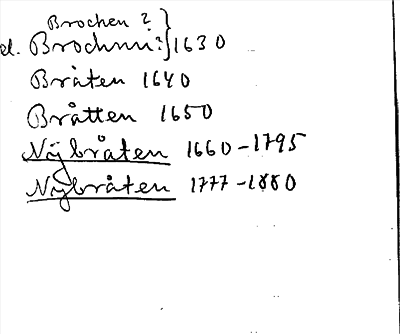 Brochen ?
el. Brochnni? } 1630
Bråten 1640
Bråtten 1650
Nÿbråten 1660-1795
Nÿbråten 1777-1880